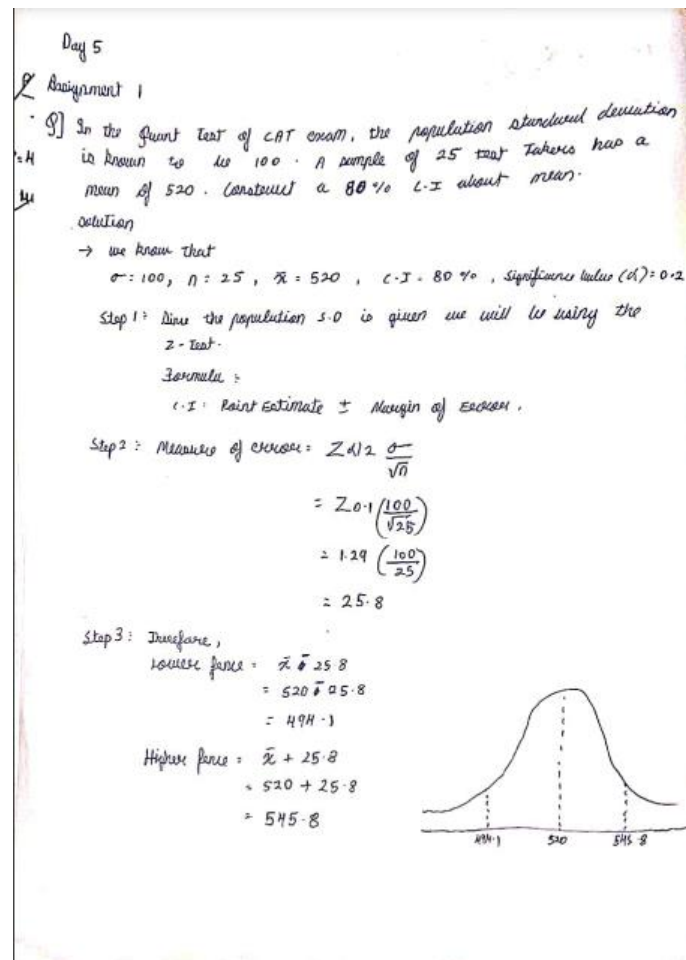 Day 5
Assignment 1
Q] In the Quant test of CAT exam, the population standard deviation
is known to be 100. A sample of 25 test takers has a
mean of 520. Construct a 80% C.I about mean.
solution
→ we know that
σ = 100, n = 25, x̄ = 520, C.I = 80%, Significance value (α) = 0.2
Step 1: Since the population S.D is given we will be using the
Z-Test.
Formula:
C.I: Point Estimate ± Margin of Error.
Step 2: Measure of error = Zα/2 σ/√n
= Z0.1 (100/√25)
= 1.29 (100/25)
= 25.8
Step 3: Therefore,
Lower fence = x̄ - 25.8
= 520 - 25.8
= 494.1
Higher fence = x̄ + 25.8
= 520 + 25.8
= 545.8
494.1 520 545.8